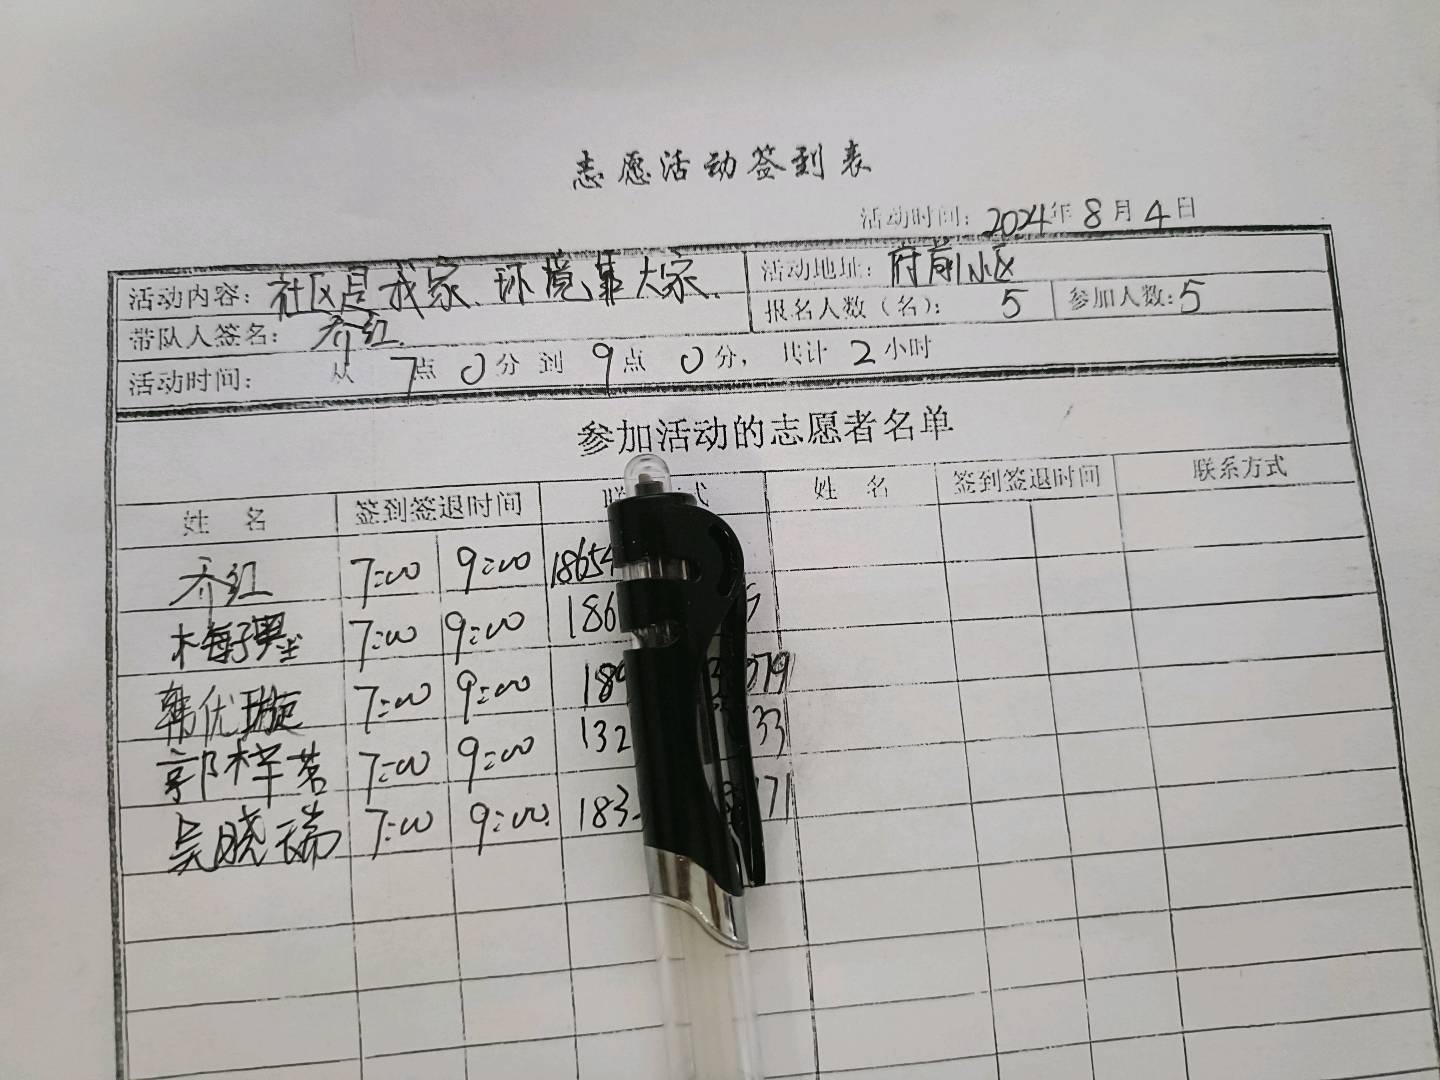 志愿活动签到表
活动时间: 2024年 8月 4日
活动内容: 社区是我家、环境靠大家. 活动地址: 府前小区
带队人签名: 乔红. 报名人数(名): 5 参加人数: 5
活动时间: 从 7点 0分 到 9点 0分, 共计 2小时
参加活动的志愿者名单
姓 名 签到签退时间 联 式 姓 名 签到签退时间 联系方式
乔红 7:00 9:00 18654
7:00 9:00 186
韩优璇 7:00 9:00 379
郭梓茗 7:00 9:00 132 33
吴晓瑞 7:00 9:00. 183 171